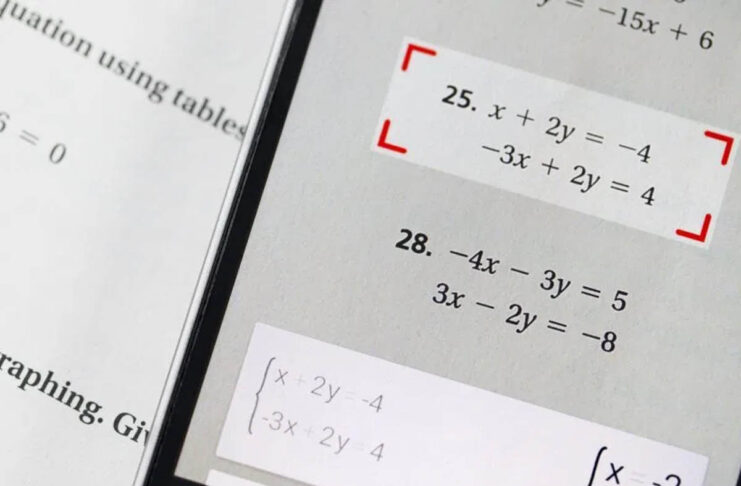 quation using tables
6 = 0
raphing. Giv
y = −15x + 6
25. x + 2y = −4
−3x + 2y = 4
28. −4x − 3y = 5
3x − 2y = −8
x + 2y = -4
-3x + 2y = 4
x = -2